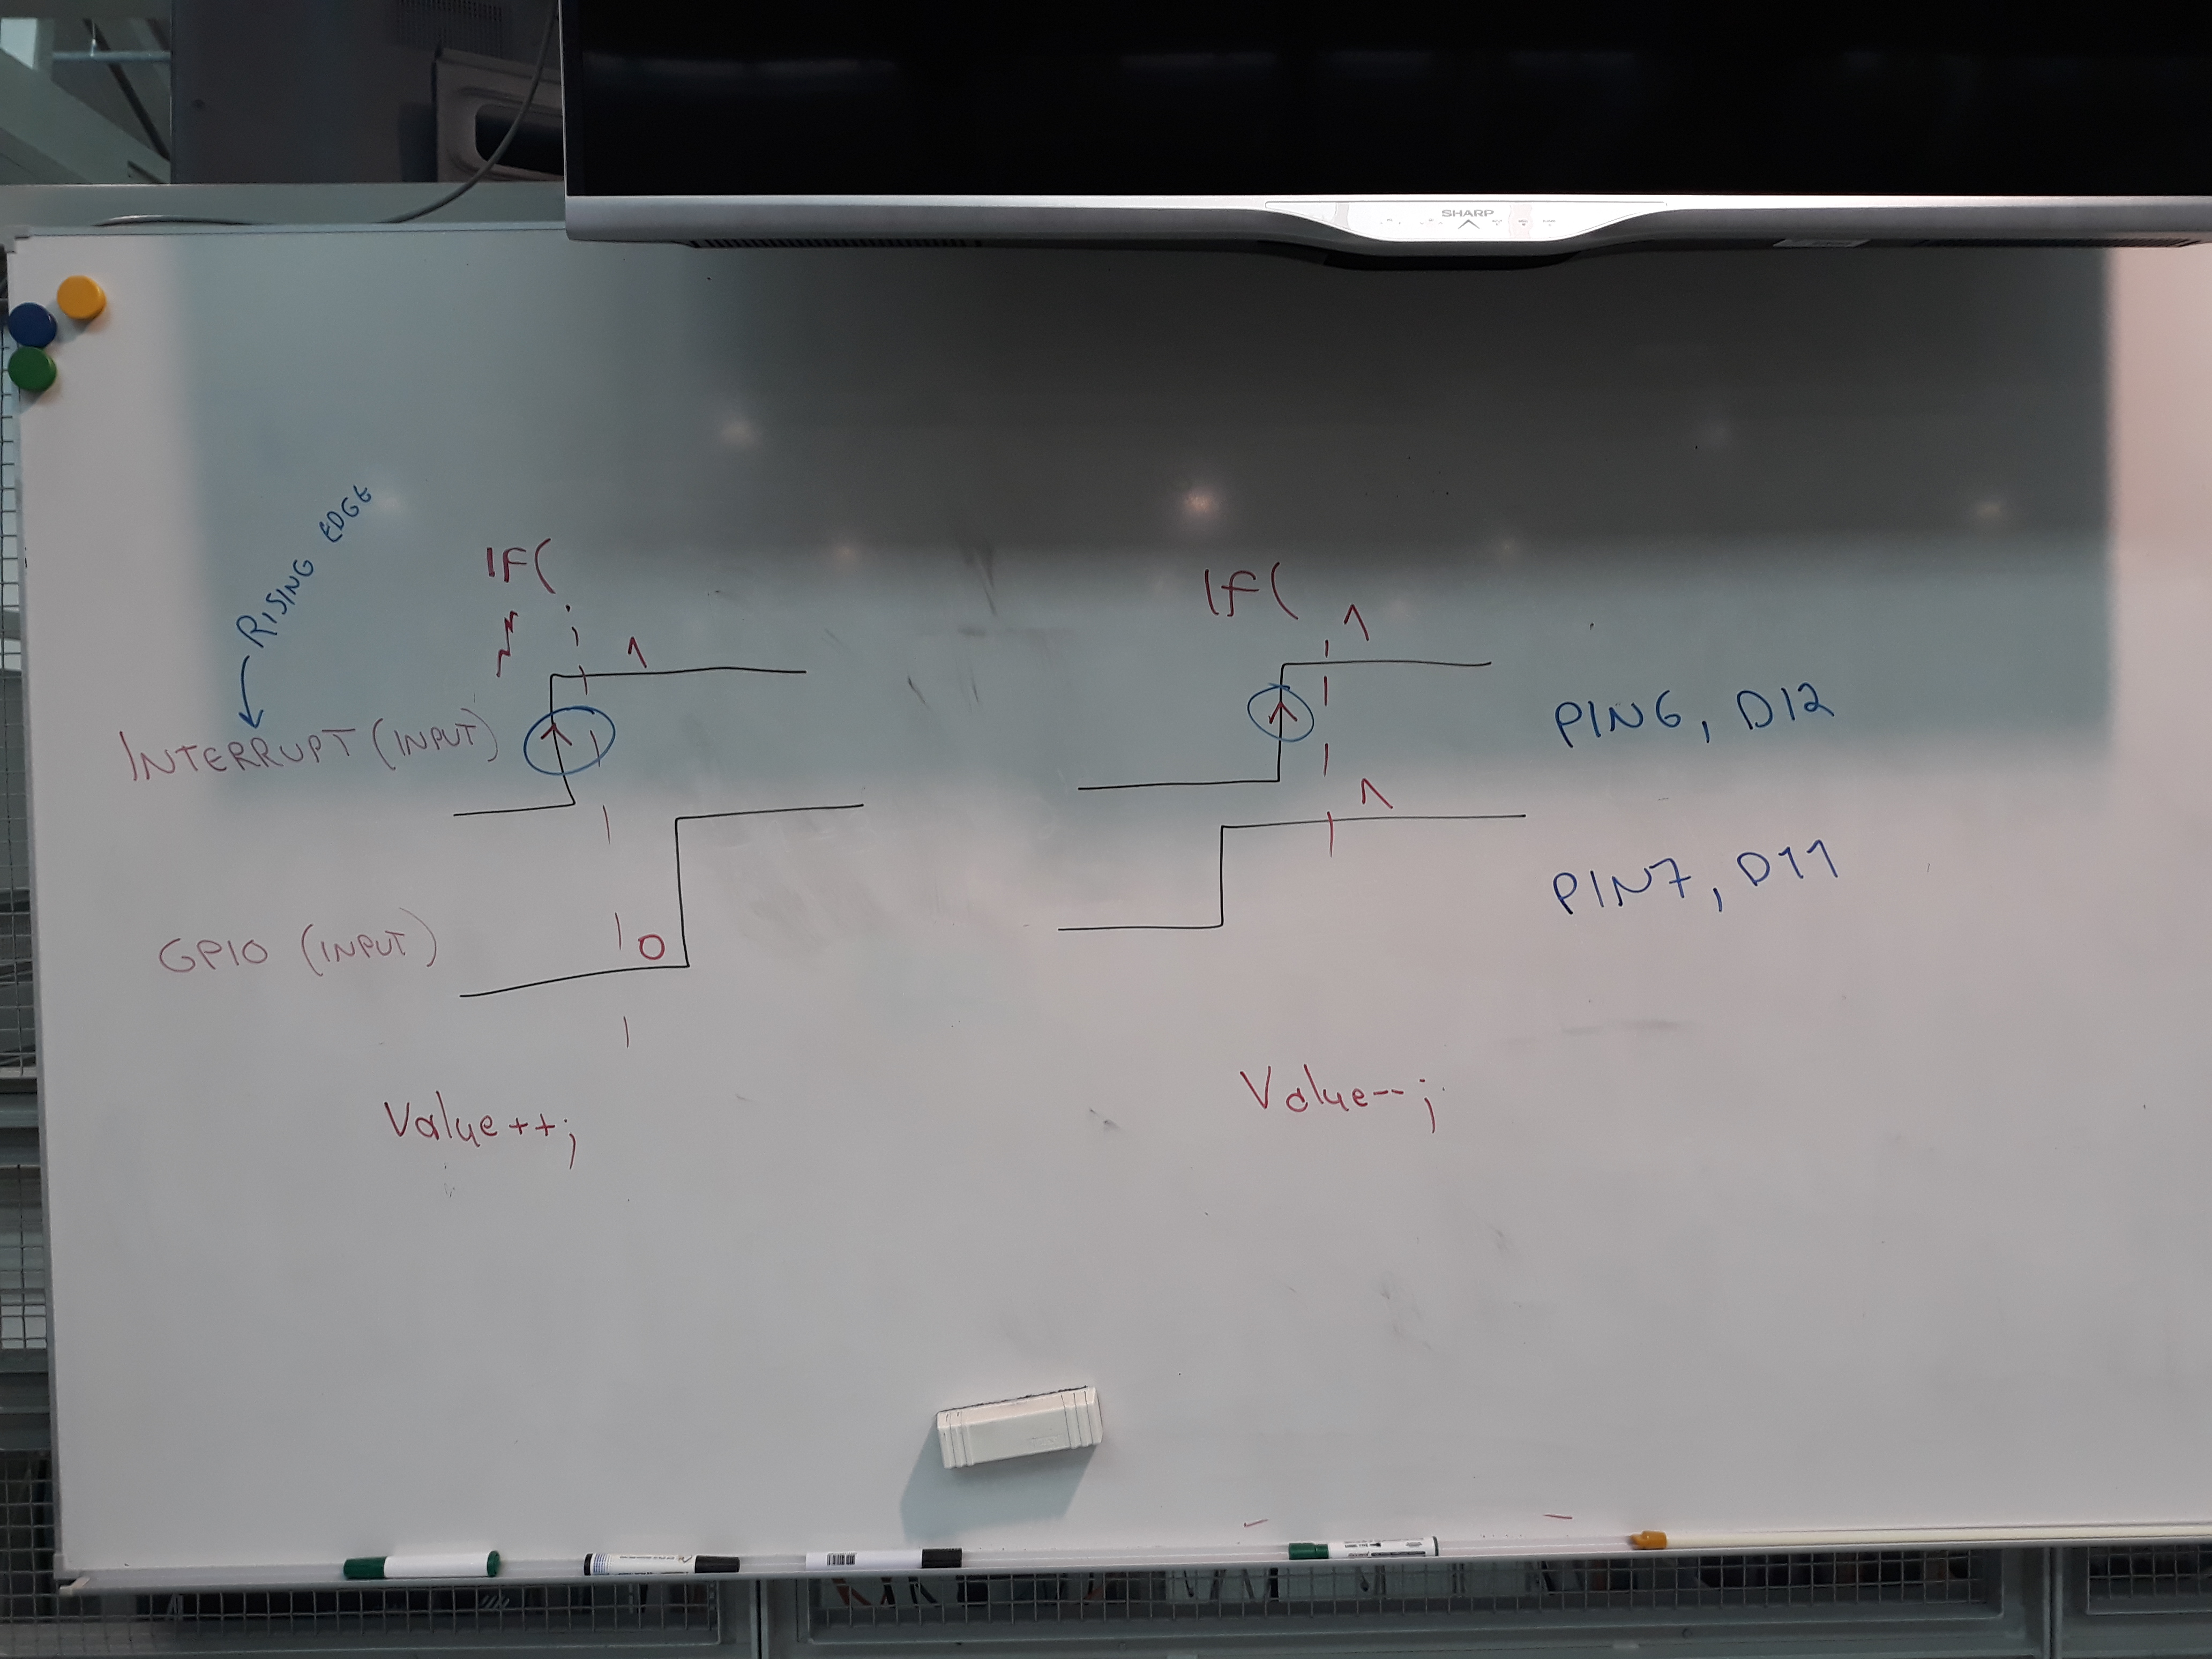 SHARP
RISING EDGE
IF(
1
INTERRUPT (INPUT)
GPIO (INPUT)
0
Value++;
If(
1
1
PIN6, D12
PIN7, D11
Value--;